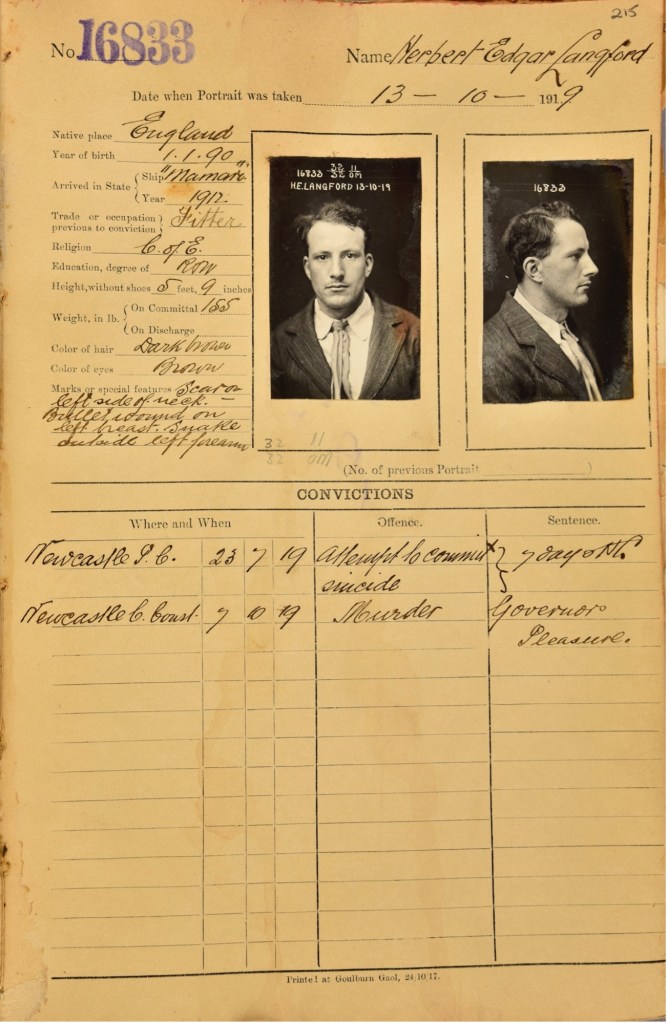 215
No. 16833
Name Herbert Edgar Langford
Date when Portrait was taken 13 — 10 — 1919
Native place England
Year of birth 1.1.90
Arrived in State { Ship "Mamari"
Year 1912.
Trade or occupation previous to conviction } Fitter
Religion C. of E.
Education, degree of R&W
Height, without shoes 5 feet, 9 inches
Weight, in lb. { On Committal 155
On Discharge
Color of hair Dark brown
Color of eyes Brown
Marks or special features Scar on
left side of neck. –
Bullet wound on
left breast. Snake
outside left forearm
16833 32 11
32 OM
H.E.LANGFORD 13-10-19
16833
32 11
32 OM
(No. of previous Portrait )
CONVICTIONS
Where and When Offence. Sentence.
Newcastle P. C. 23 7 19 Attempt to commit } 7 days
suicide
Newcastle C. Court 7 10 19 Murder Governors
Pleasure.
Printed at Goulburn Gaol, 24/10/17.